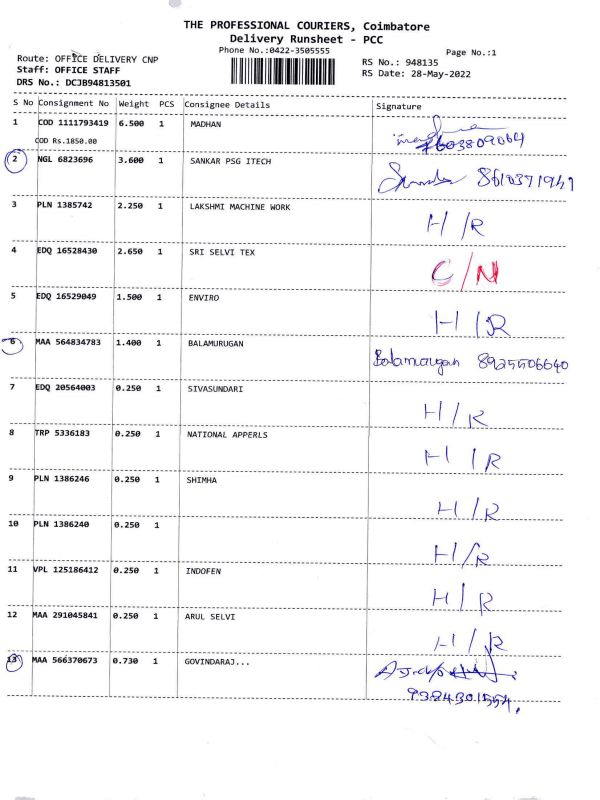 THE PROFESSIONAL COURIERS, Coimbatore
Delivery Runsheet - PCC
Phone No.:0422-3505555
Page No.:1
Route: OFFICE DELIVERY CNP
RS No.: 948135
Staff: OFFICE STAFF
RS Date: 28-May-2022
DRS No.: DCJB94813501
S No Consignment No Weight PCS Consignee Details Signature
1 COD 1111793419 6.500 1 MADHAN
COD Rs.1850.00
2 NGL 6823696 3.600 1 SANKAR PSG ITECH
3 PLN 1385742 2.250 1 LAKSHMI MACHINE WORK H/R
4 EDQ 16528430 2.650 1 SRI SELVI TEX C/N
5 EDQ 16529049 1.500 1 ENVIRO H/R
6 MAA 564834783 1.400 1 BALAMURUGAN Balamurugan 8925506640
7 EDQ 20564003 0.250 1 SIVASUNDARI H/R
8 TRP 5336183 0.250 1 NATIONAL APPERLS H/R
9 PLN 1386246 0.250 1 SHIMHA H/R
10 PLN 1386240 0.250 1 H/R
11 VPL 125186412 0.250 1 INDOFEN H/R
12 MAA 291045841 0.250 1 ARUL SELVI H/R
13 MAA 566370673 0.730 1 GOVINDARAJ...